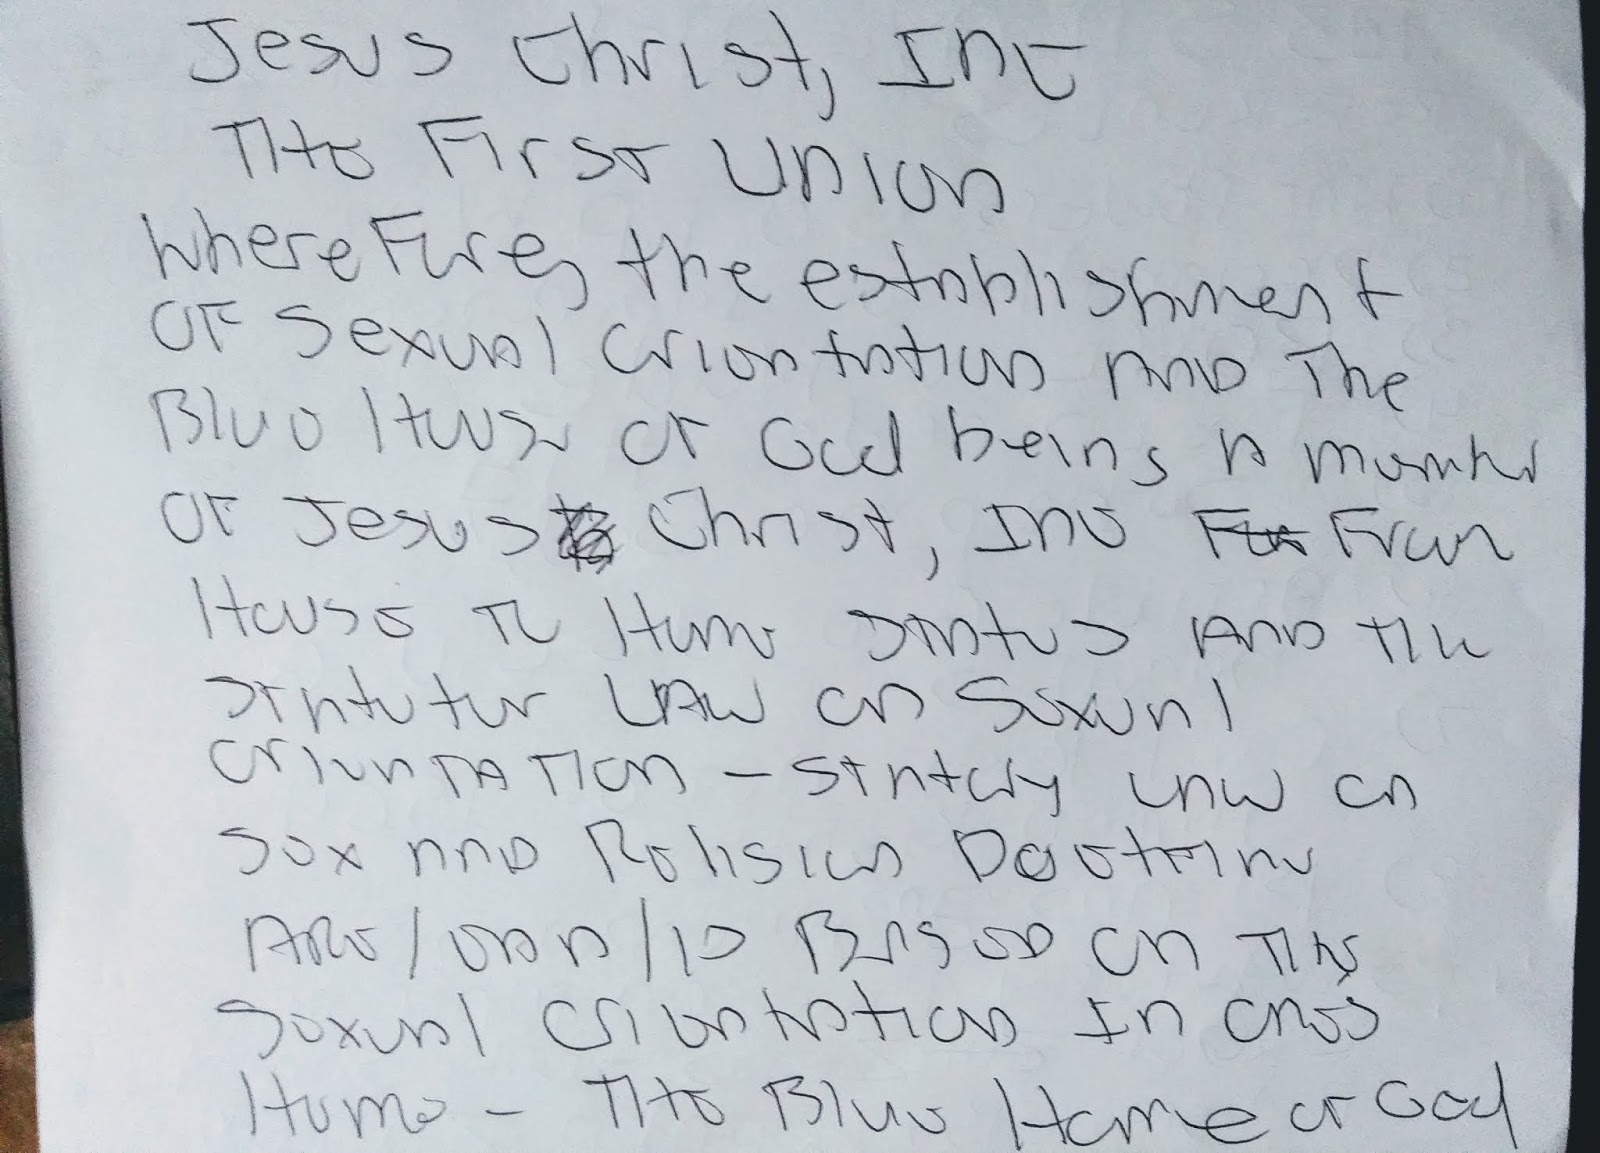 Jesus Christ, Inc
The First Union
Wherefore, the establishment
of Sexual Orientation AND The
Blue House of God being a member
of Jesus Christ, Inc From
House to Home Status AND The
Statutor LAW on Sexual
OrienTATION - Statory Law on
Sex AND Religion Doctrine
ARE / / Based on The
Sexual Orientation In ones
Home - The Blue Home of God